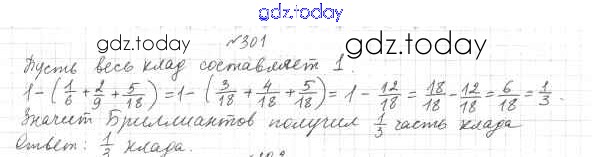 gdz.today
gdz.today
№301
gdz.today
Пусть весь клад составляет 1.
1-(1/6+2/9+5/18)=1-(3/18+4/18+5/18)=1-12/18=18/18-12/18=6/18=1/3.
Значит Бриллиантов получил 1/3 часть клада
Ответ: 1/3 клада.